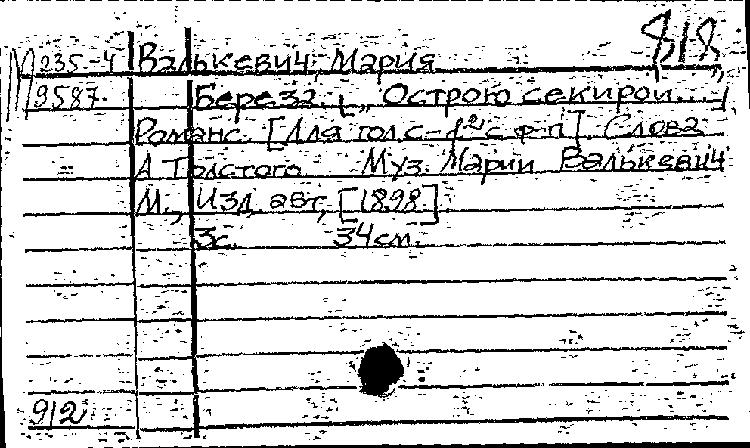 818
М 235-4 Валькевич, Мария
9587. Береза. [„Острою секирой...]
Романс. [Для голс-f² с ф-п]. Слова
= А Толстого Муз. Марии Валькевич
М., Изд. авт, [1898].
3с. 34см.
912